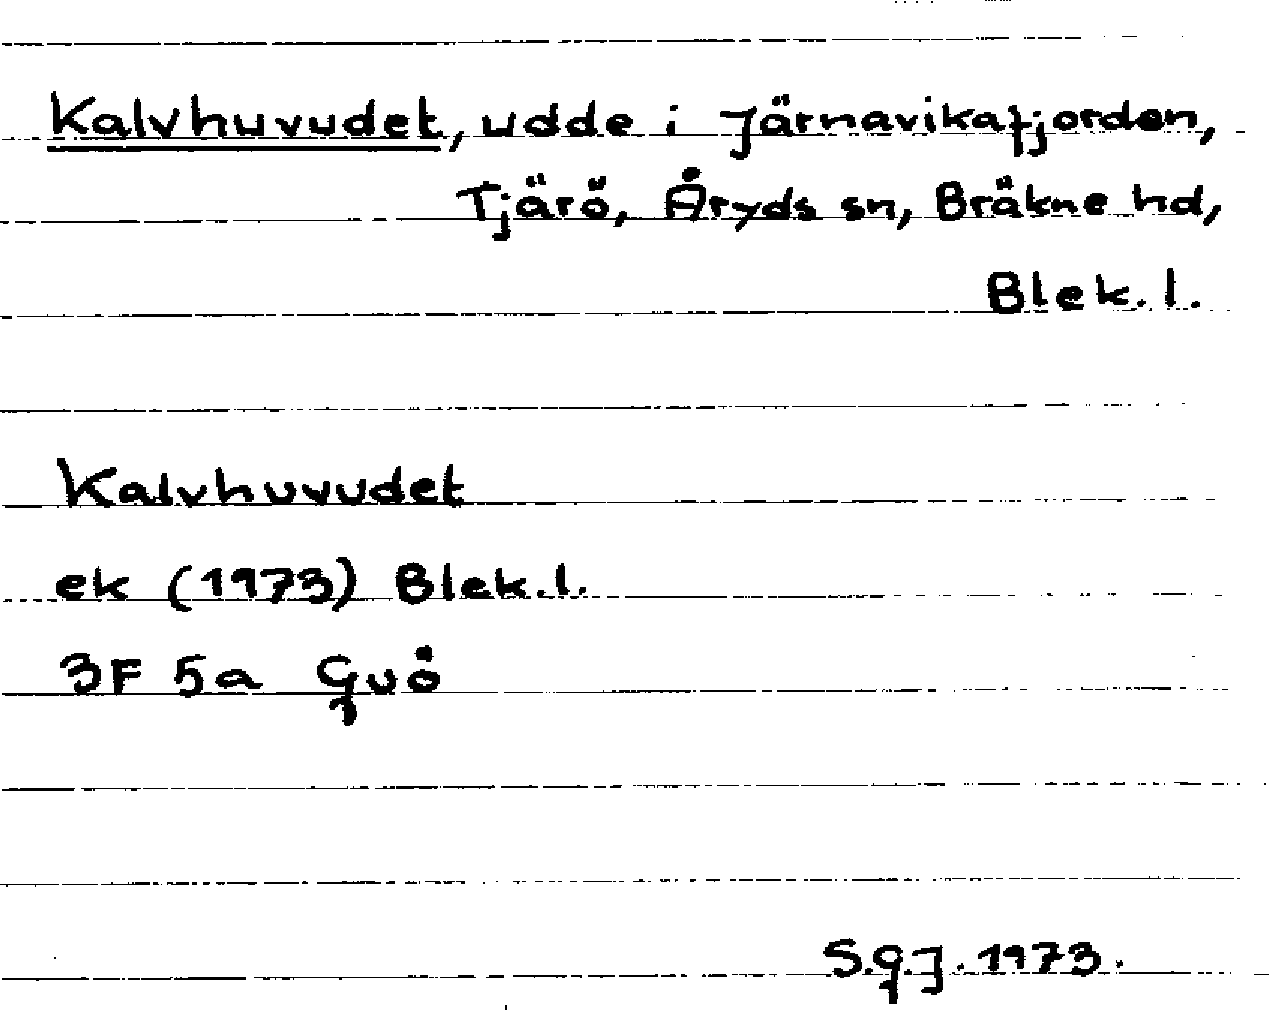 Kalvhuvudet, udde i Järnavikafjorden,
Tjärö, Åryds sn, Bräkne hd,
Blek.l.
Kalvhuvudet
ek (1973) Blek.l.
3F 5a Guö
S.G.J. 1973.